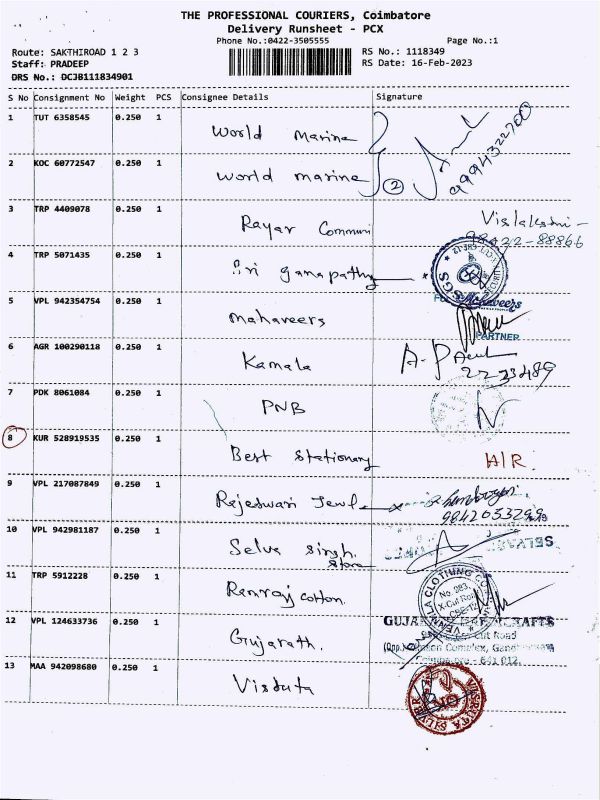 THE PROFESSIONAL COURIERS, Coimbatore
Delivery Runsheet - PCX
Phone No.:0422-3505555
Page No.:1
Route: SAKTHIROAD 1 2 3
RS No.: 1118349
Staff: PRADEEP
RS Date: 16-Feb-2023
DRS No.: DCJB111834901
S No Consignment No Weight PCS Consignee Details Signature
1 TUT 6358545 0.250 1 World Marine
9994322700
2 KOC 60772547 0.250 1 World marine 2
3 TRP 4409078 0.250 1 Rayar Communi
98422-88866
4 TRP 5071435 0.250 1 Sri ganapathy
SGS
Mahaveers
5 VPL 942354754 0.250 1 mahaveers
PARTNER
6 AGR 100290118 0.250 1 Kamala
2223489
7 PDK 8061084 0.250 1 PNB
8 KUR 528919535 0.250 1 Best Stationary H/R.
9 VPL 217087849 0.250 1 Rajeswari Jewl
9842633299
10 VPL 942981187 0.250 1 Selva Singh. Store
11 TRP 5912228 0.250 1 Ramraj cotton.
No. 083,
X-Cut Road
12 VPL 124633736 0.250 1 Gujarath.
Cut Road
(Opp.) Complex,
Coimbatore - 641 012.
13 MAA 942098680 0.250 1 Visduta
SILVER